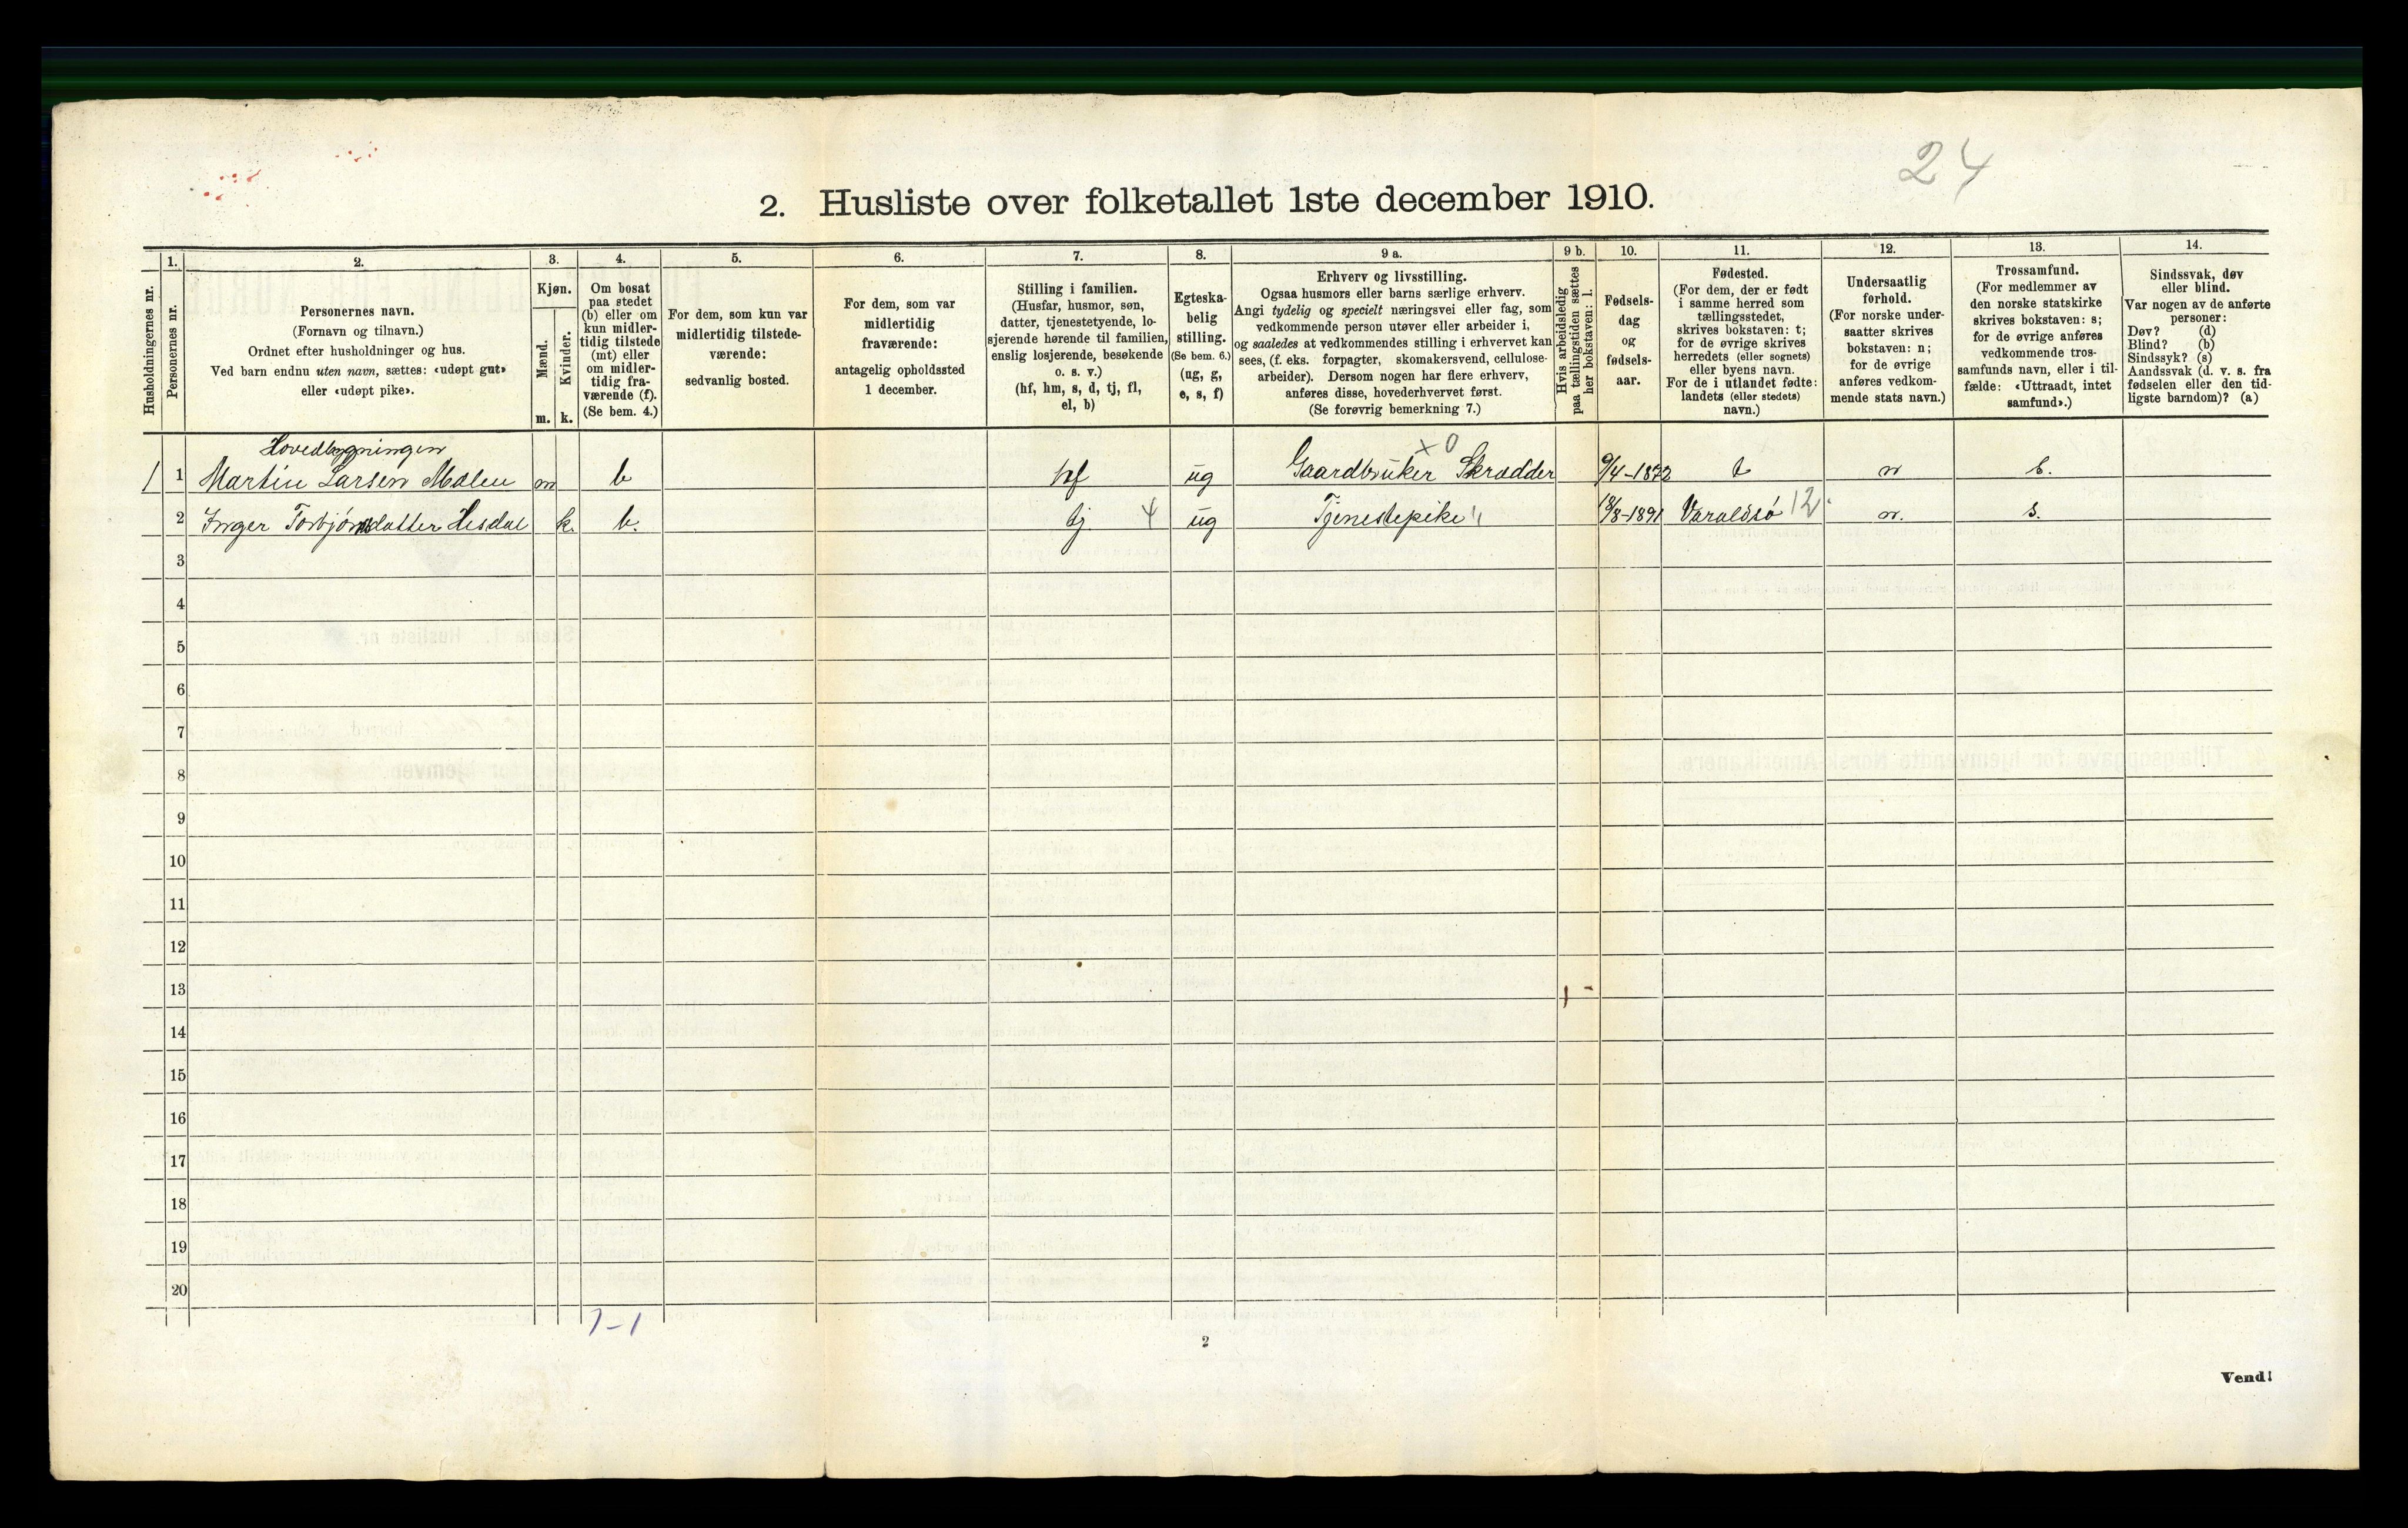 24
2. Husliste over folketallet 1ste december 1910.
Husholdningernes nr.
1.
Personernes nr.
2.
Personernes navn.
(Fornavn og tilnavn.)
Ordnet efter husholdninger og hus.
Ved barn endnu uten navn, sættes: «udøpt gut»
eller «udøpt pike».
3.
Kjøn.
Mænd.
m.
Kvinder.
k.
4.
Om bosat
paa stedet
(b) eller om
kun midler-
tidig tilstede
(mt) eller
om midler-
tidig fra-
værende (f).
(Se bem. 4.)
5.
For dem, som kun var
midlertidig tilstede-
værende:
sedvanlig bosted.
6.
For dem, som var
midlertidig
fraværende:
antagelig opholdssted
1 december.
7.
Stilling i familien.
(Husfar, husmor, søn,
datter, tjenestetyende, lo-
sjerende hørende til familien,
enslig losjerende, besøkende
o. s. v.)
(hf, hm, s, d, tj, fl,
el, b)
8.
Egteska-
belig
stilling.
(Se bem. 6.)
(ug, g,
e, s, f)
9 a.
Erhverv og livsstilling.
Ogsaa husmors eller barns særlige erhverv.
Angi tydelig og specielt næringsvei eller fag, som
vedkommende person utøver eller arbeider i,
og saaledes at vedkommendes stilling i erhvervet kan
sees, (f. eks. forpagter, skomakersvend, cellulose-
arbeider). Dersom nogen har flere erhverv,
anføres disse, hovederhvervet først.
(Se forøvrig bemerkning 7.)
9 b.
Hvis arbeidsledig
paa tællingstiden sættes
her bokstaven: l.
10.
Fødsels-
dag
og
fødsels-
aar.
11.
Fødested.
(For dem, der er født
i samme herred som
tællingsstedet,
skrives bokstaven: t;
for de øvrige skrives
herredets (eller sognets)
eller byens navn.
For de i utlandet fødte:
landets (eller stedets)
navn.)
12.
Undersaatlig
forhold.
(For norske under-
saatter skrives
bokstaven: n;
for de øvrige
anføres vedkom-
mende stats navn.)
13.
Trossamfund.
(For medlemmer av
den norske statskirke
skrives bokstaven: s;
for de øvrige anføres
vedkommende tros-
samfunds navn, eller i til-
fælde: «Uttraadt, intet
samfund».)
14.
Sindssvak, døv
eller blind.
Var nogen av de anførte
personer:
Døv? (d)
Blind? (b)
Sindssyk? (s)
Aandssvak (d. v. s. fra
fødselen eller den tid-
ligste barndom)? (a)
Hovedbygningen
x 0
1 1 Martin Larsen Mælen m b hf ug Gaardbruker Skrædder 9/4-1872 t n s.
2 Inger Torbjørnsdatter Hesdal k. b. tj 4 ug Tjenestepike 18/8-1891 Varaldsø 12. n. s.
3
4
5
6
7
8
9
10
11
12
13
14
15
16
17
18
19
20
1-1
2
Vend!